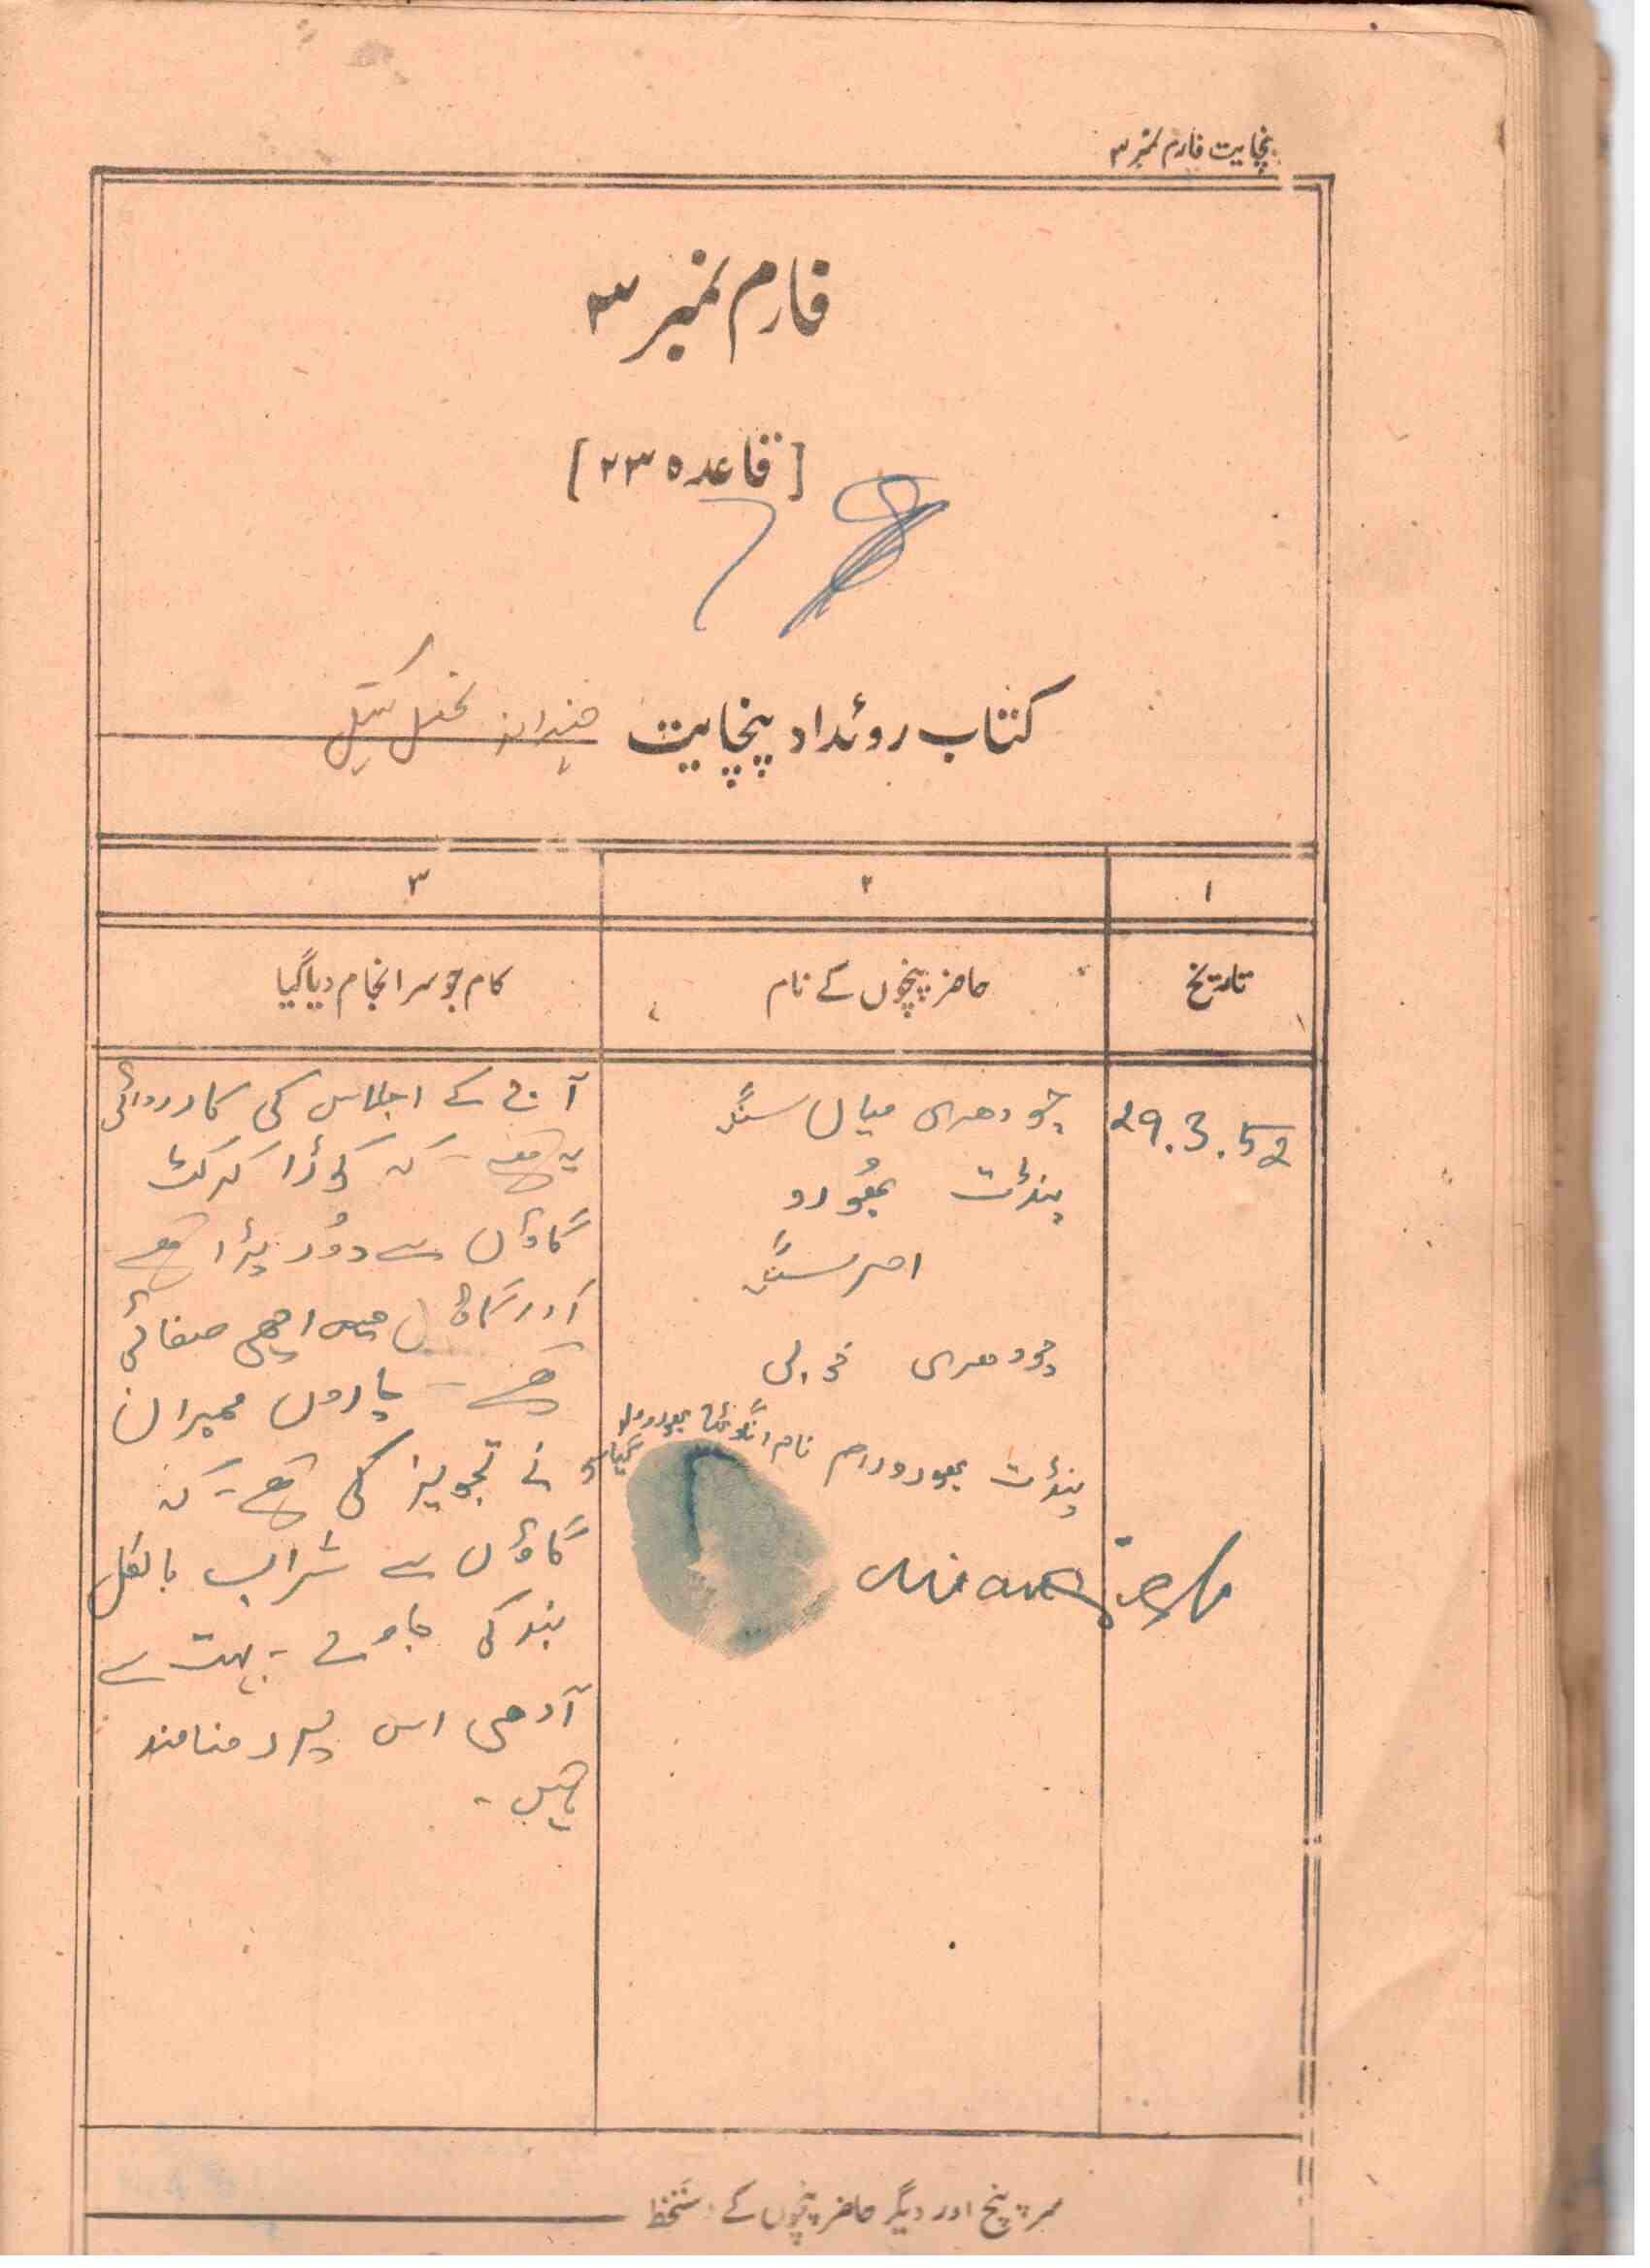 پنچایت فارم نمبر ۳
فارم نمبر ۳
[قاعدہ ۲۳]
کتاب روئداد پنچایت تحصیل کیتھل
۱ ۲ ۳
تاریخ حاضر پنچوں کے نام کام جو سر انجام دیا گیا
29.3.52
چودھری میاں سنگھ
پنڈت بھورو
امر سنگھ
چودھری
پنڈت بھورو رام نام انگوٹھا بھورو
آج کے اجلاس کی کارروائی
یہ ہے - کہ کوڑا کرکٹ
گاؤں سے دُور پڑا ہے
اور گاؤں میں اچھی صفائی
ہے - چاروں ممبران
نے تجویز کی ہے - کہ
گاؤں سے شراب بالکل
بند کی جاوے - بہت سے
آدمی اس پر رضامند
ہیں -
سر پنچ اور دیگر حاضر پنچوں کے دستخط